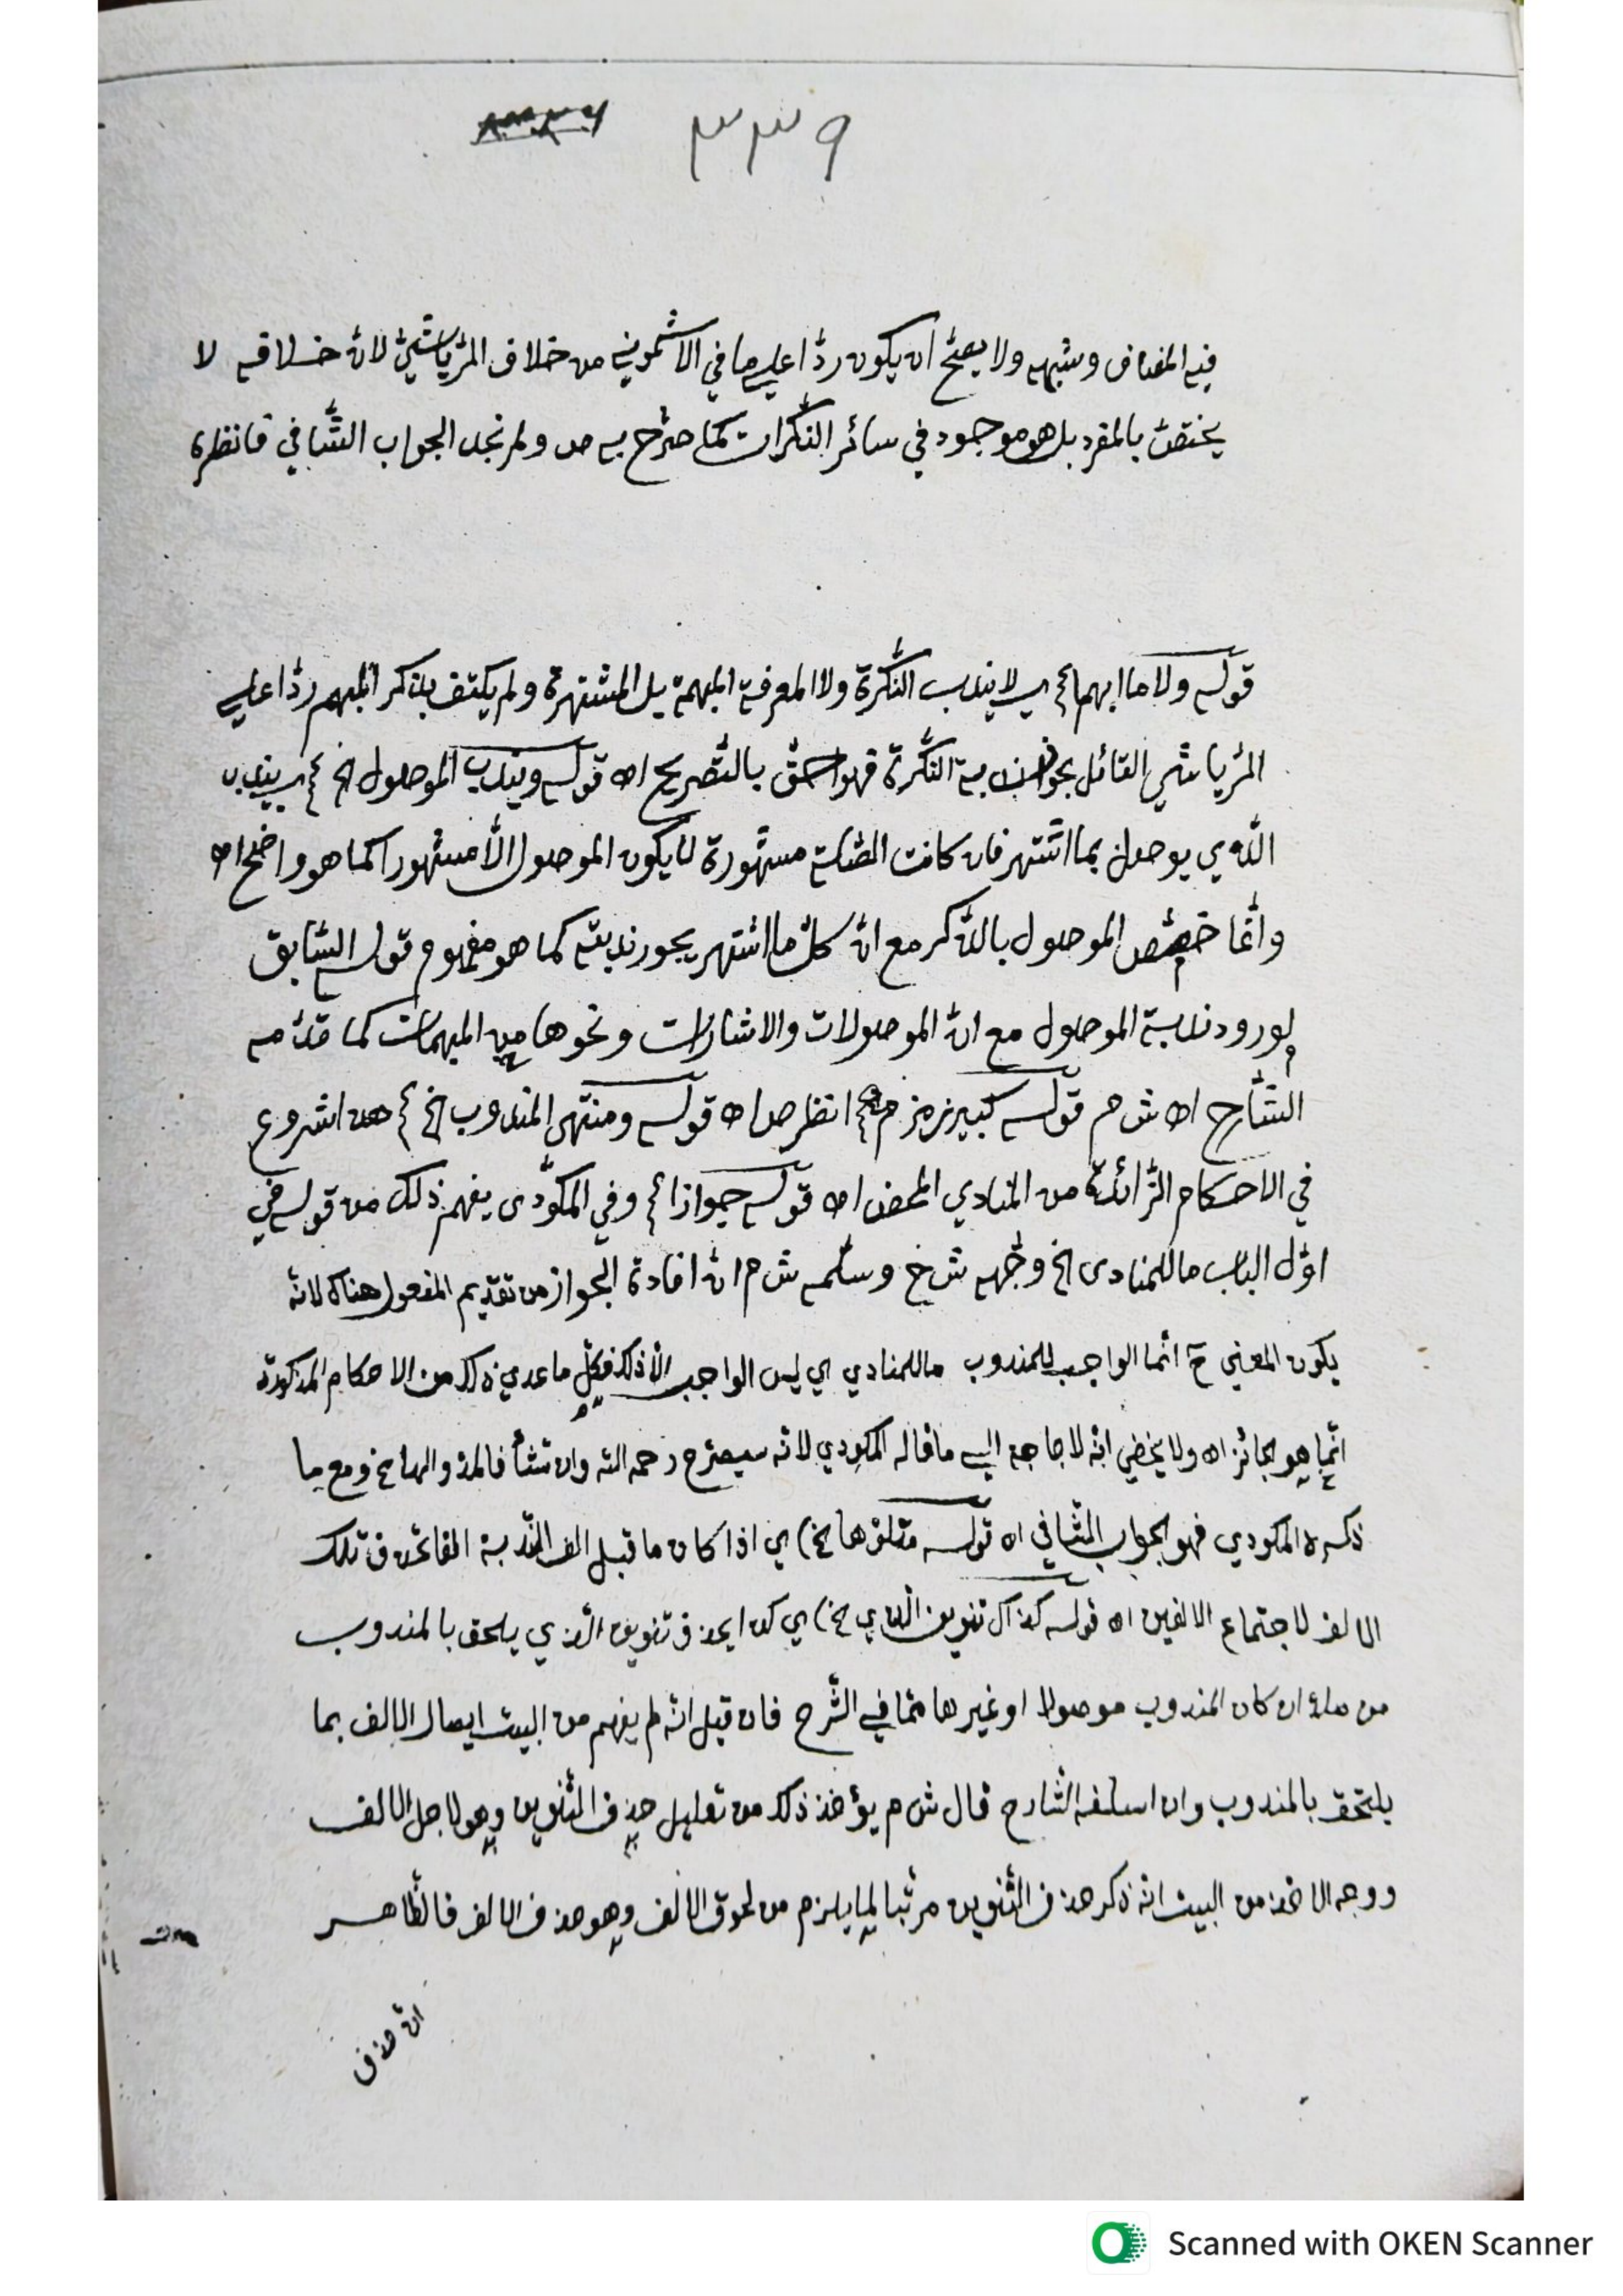 ٣٣٩
فيه المضاف وشبهه ولا يصحّ ان يكون ردّا علي ما في الاشموني من خلاف الرّياشيّ لانّ خلافه لا
يختصّ بالمفرد بل هو موجود في سائر النّكرات كما صرّح به ص ولم نجد الجواب الثّاني فانظره
قوله ولا ما ابهما لا يندب النّكرة ولا المعرفة المبهمة بل المشتهرة ولم يكتف بذكر المبهم ردّا علي
الرّياشي القائل بجواز ندبة النّكرة فهو احقّ بالتّصريح اه قوله ويندب الموصول الخ يندب
الّذي يوصل بما اشتهر فان كانت الصّلة مشهورة لا يكون الموصول الّا مشهورا كما هو واضح اه
وانّما خصّص الموصول بالذّكر مع انّ كلّ ما اشتهر يجوز ندبته كما هو مفهوم قوله السّابق
لورود ندبة الموصول مع انّ الموصولات والاشارات ونحوها من المبهمات كما قدّمه
الشّارح اه ش م قوله كبير زمزم انظر ص اه قوله ومنتهى المندوب الخ هذا شروع
في الاحكام الزّائدة من المنادي المحض اه قوله جوازا وفي المكّودى يفهم ذلك من قوله في
اوّل الباب ما للمنادى الخ وجّهه ش خ وسلّمه ش م انّ افادة الجواز من تقديم المفعول هناك لانّه
يكون المعني ح انّما الواجب للمندوب ما للمنادي اي ليس الواجب الّا ذلك فكلّ ما عدي ذلك من الاحكام المذكورة
انّما هو الجائز اه ولا يخفي انّه لا حاجة اليه ما قاله المكودي لانّه سيصرّح رحمه اللّه وان تشأ فالمدّ والها خ ومع ما
ذكره المكودي فهو الجواب الثّاني اه قوله متلوّها خ) اي اذا كان ما قبل الف النّدبة الفا تحذف تلك
الالف لاجتماع الالفين اه قوله كذاك تنوين الّذي خ) اي كذا يحذف تنوين الّذي يلحق بالمندوب
من صلة ان كان المندوب موصولا او غيرها ممّا في الشّرح فان قيل انّه لم يفهم من البيت ايصال الالف بما
يلتحق بالمندوب وان اسلفه الشّارح قال ش م يؤخذ ذلك من تعليل حذف التّنوين وهو لاجل الالف
ووجه الاخذ من البيت انّه ذكر حذف التّنوين مرتّبا لما يلزم من لحوق الالف وهو حذف الالف فالظّاهر
انّه حذف
Scanned with OKEN Scanner